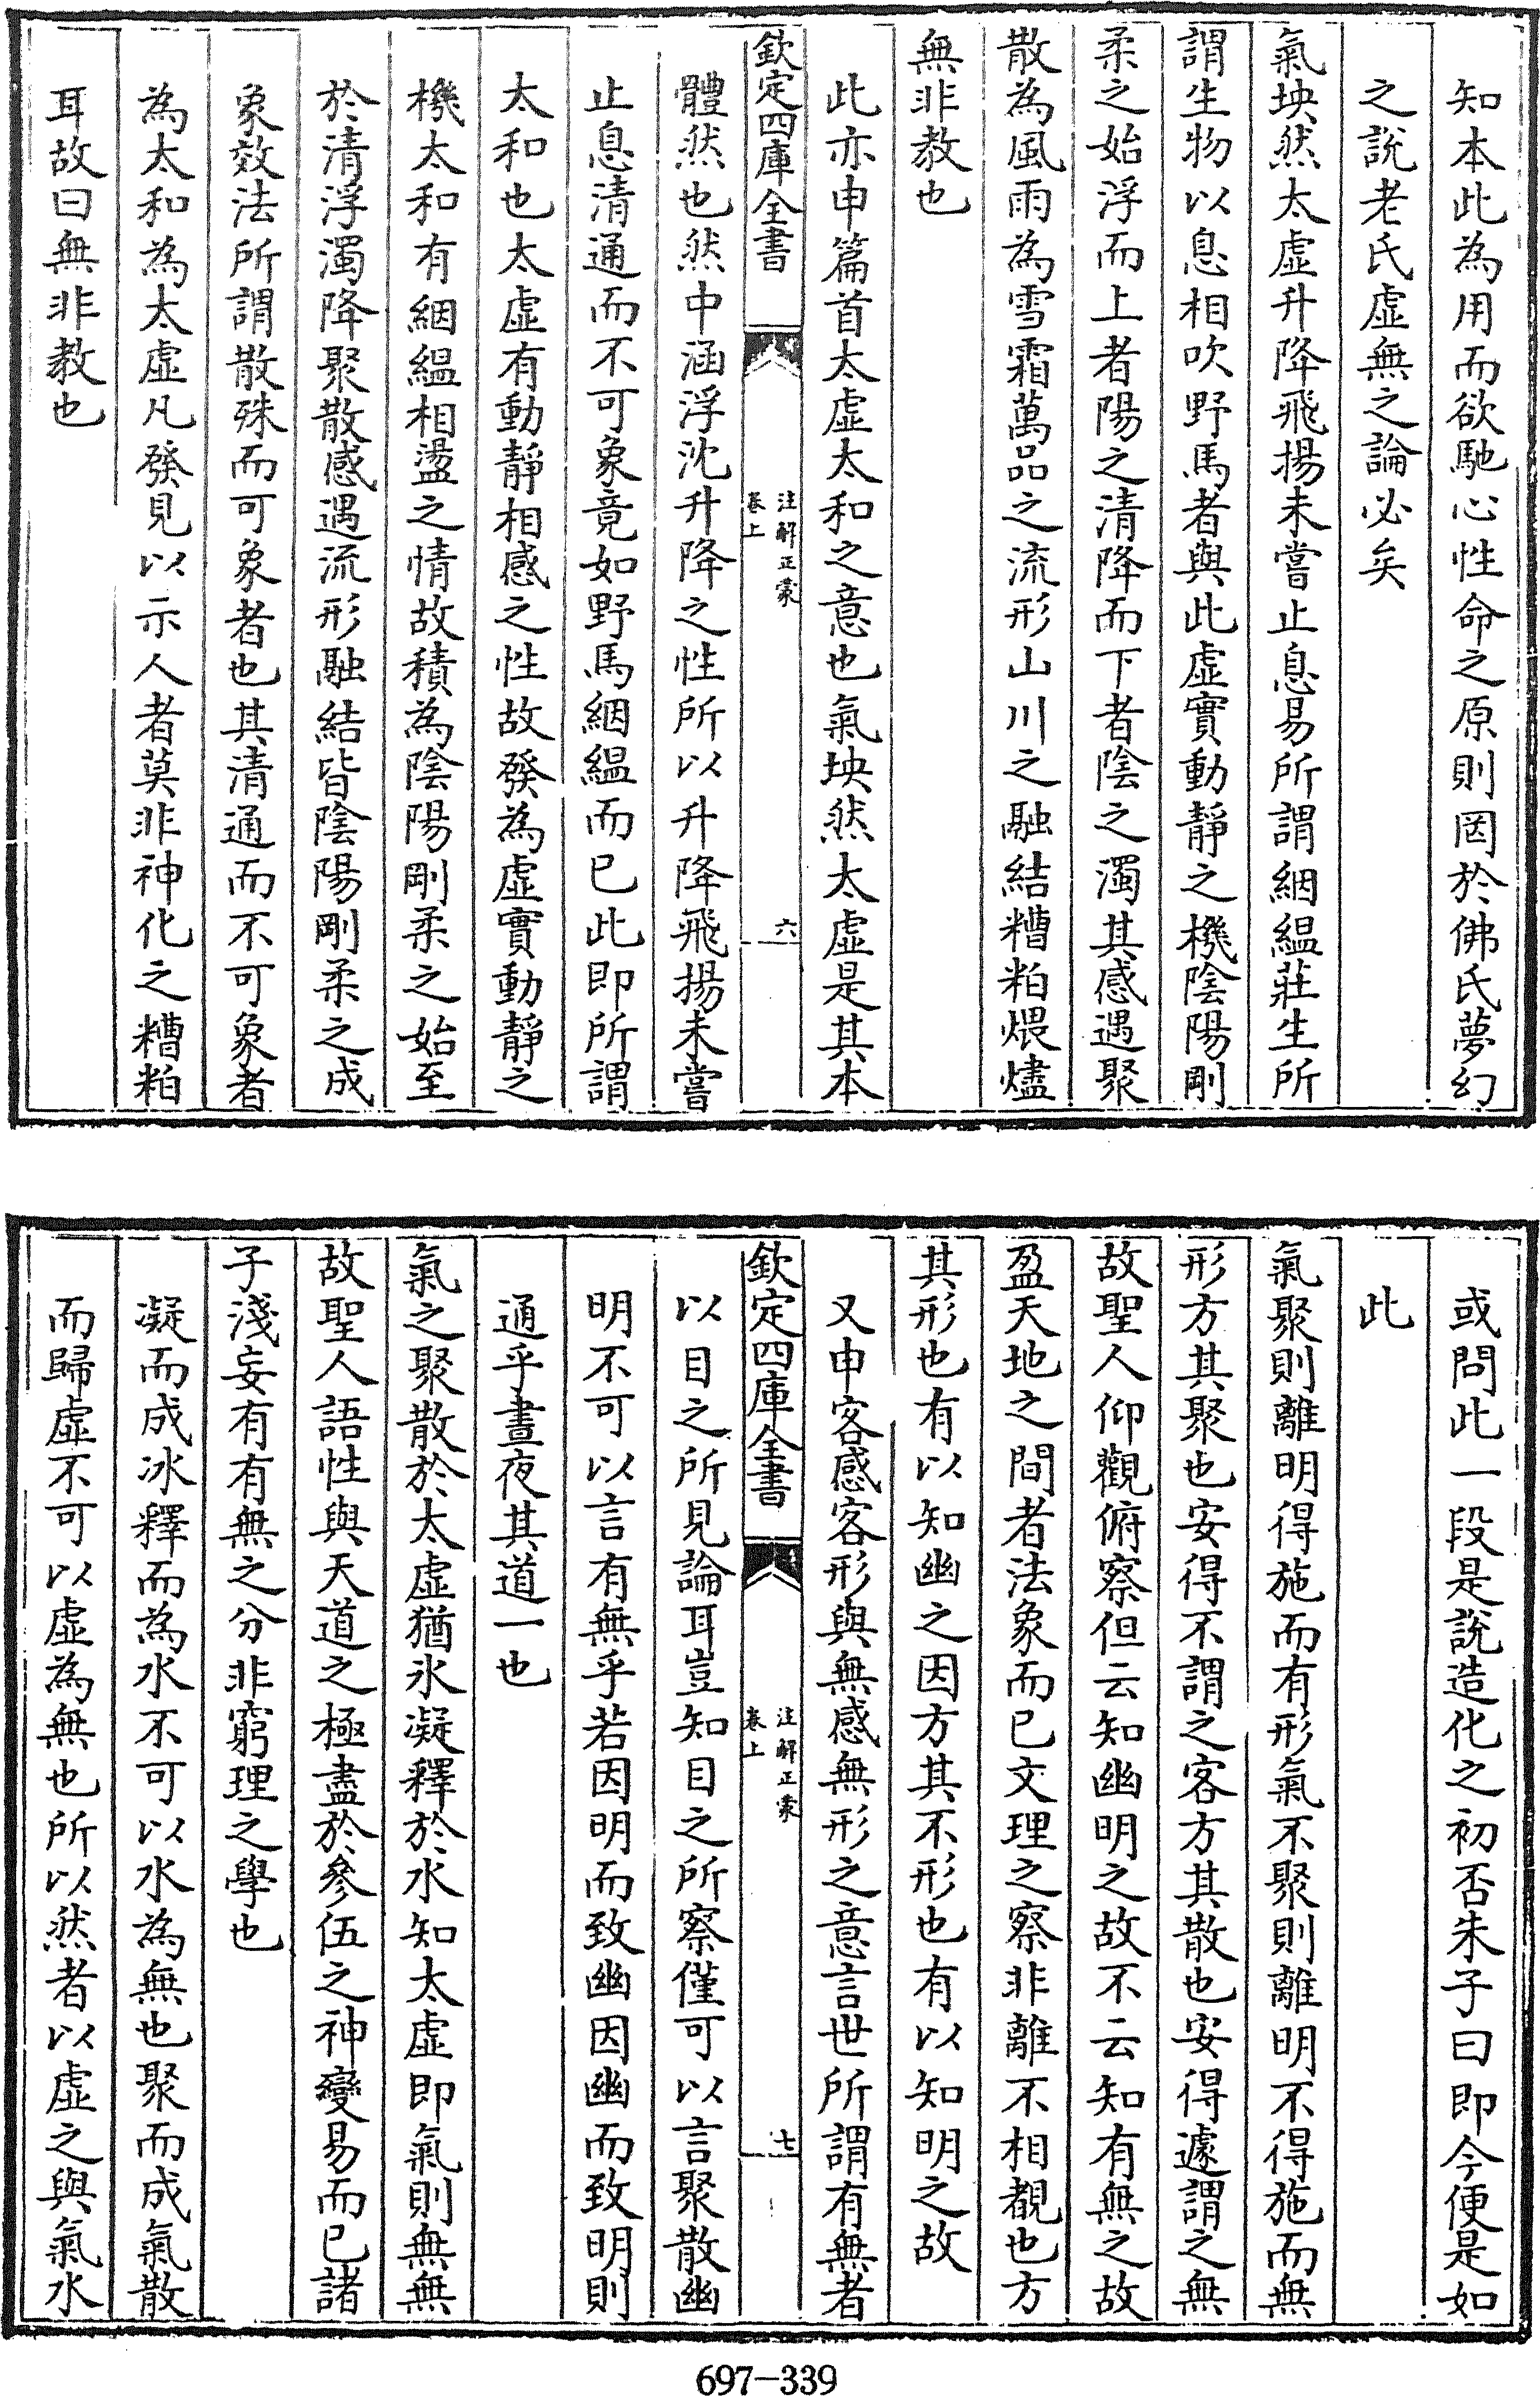 知本此為用而欲馳心性命之原則罔於佛氏夢幻
之說老氏虛無之論必矣
氣坱然太虛升降飛揚未嘗止息易所謂絪縕莊生所
謂生物以息相吹野馬者與此虛實動靜之機陰陽剛
柔之始浮而上者陽之清降而下者陰之濁其感遇聚
散為風雨為雪霜萬品之流形山川之融結糟粕煨燼
無非教也
此亦申篇首太虛太和之意也氣坱然太虛是其本
欽定四庫全書
注解正蒙
卷上
六
體然也然中涵浮沈升降之性所以升降飛揚未嘗
止息清通而不可象竟如野馬絪縕而已此即所謂
太和也太虛有動靜相感之性故發為虛實動靜之
機太和有絪縕相盪之情故積為陰陽剛柔之始至
於清浮濁降聚散感遇流形融結皆陰陽剛柔之成
象效法所謂散殊而可象者也其清通而不可象者
為太和為太虛凡發見以示人者莫非神化之糟粕
耳故曰無非教也
或問此一段是說造化之初否朱子曰即今便是如
此
氣聚則離明得施而有形氣不聚則離明不得施而無
形方其聚也安得不謂之客方其散也安得遽謂之無
故聖人仰觀俯察但云知幽明之故不云知有無之故
盈天地之間者法象而已文理之察非離不相覩也方
其形也有以知幽之因方其不形也有以知明之故
又申客感客形與無感無形之意言世所謂有無者
欽定四庫全書
注解正蒙
卷上
七
以目之所見論耳豈知目之所察僅可以言聚散幽
明不可以言有無乎若因明而致幽因幽而致明則
通乎晝夜其道一也
氣之聚散於太虛猶氷凝釋於水知太虛即氣則無無
故聖人語性與天道之極盡於參伍之神變易而已諸
子淺妄有有無之分非窮理之學也
凝而成冰釋而為水不可以水為無也聚而成氣散
而歸虛不可以虛為無也所以然者以虛之與氣水
697-339